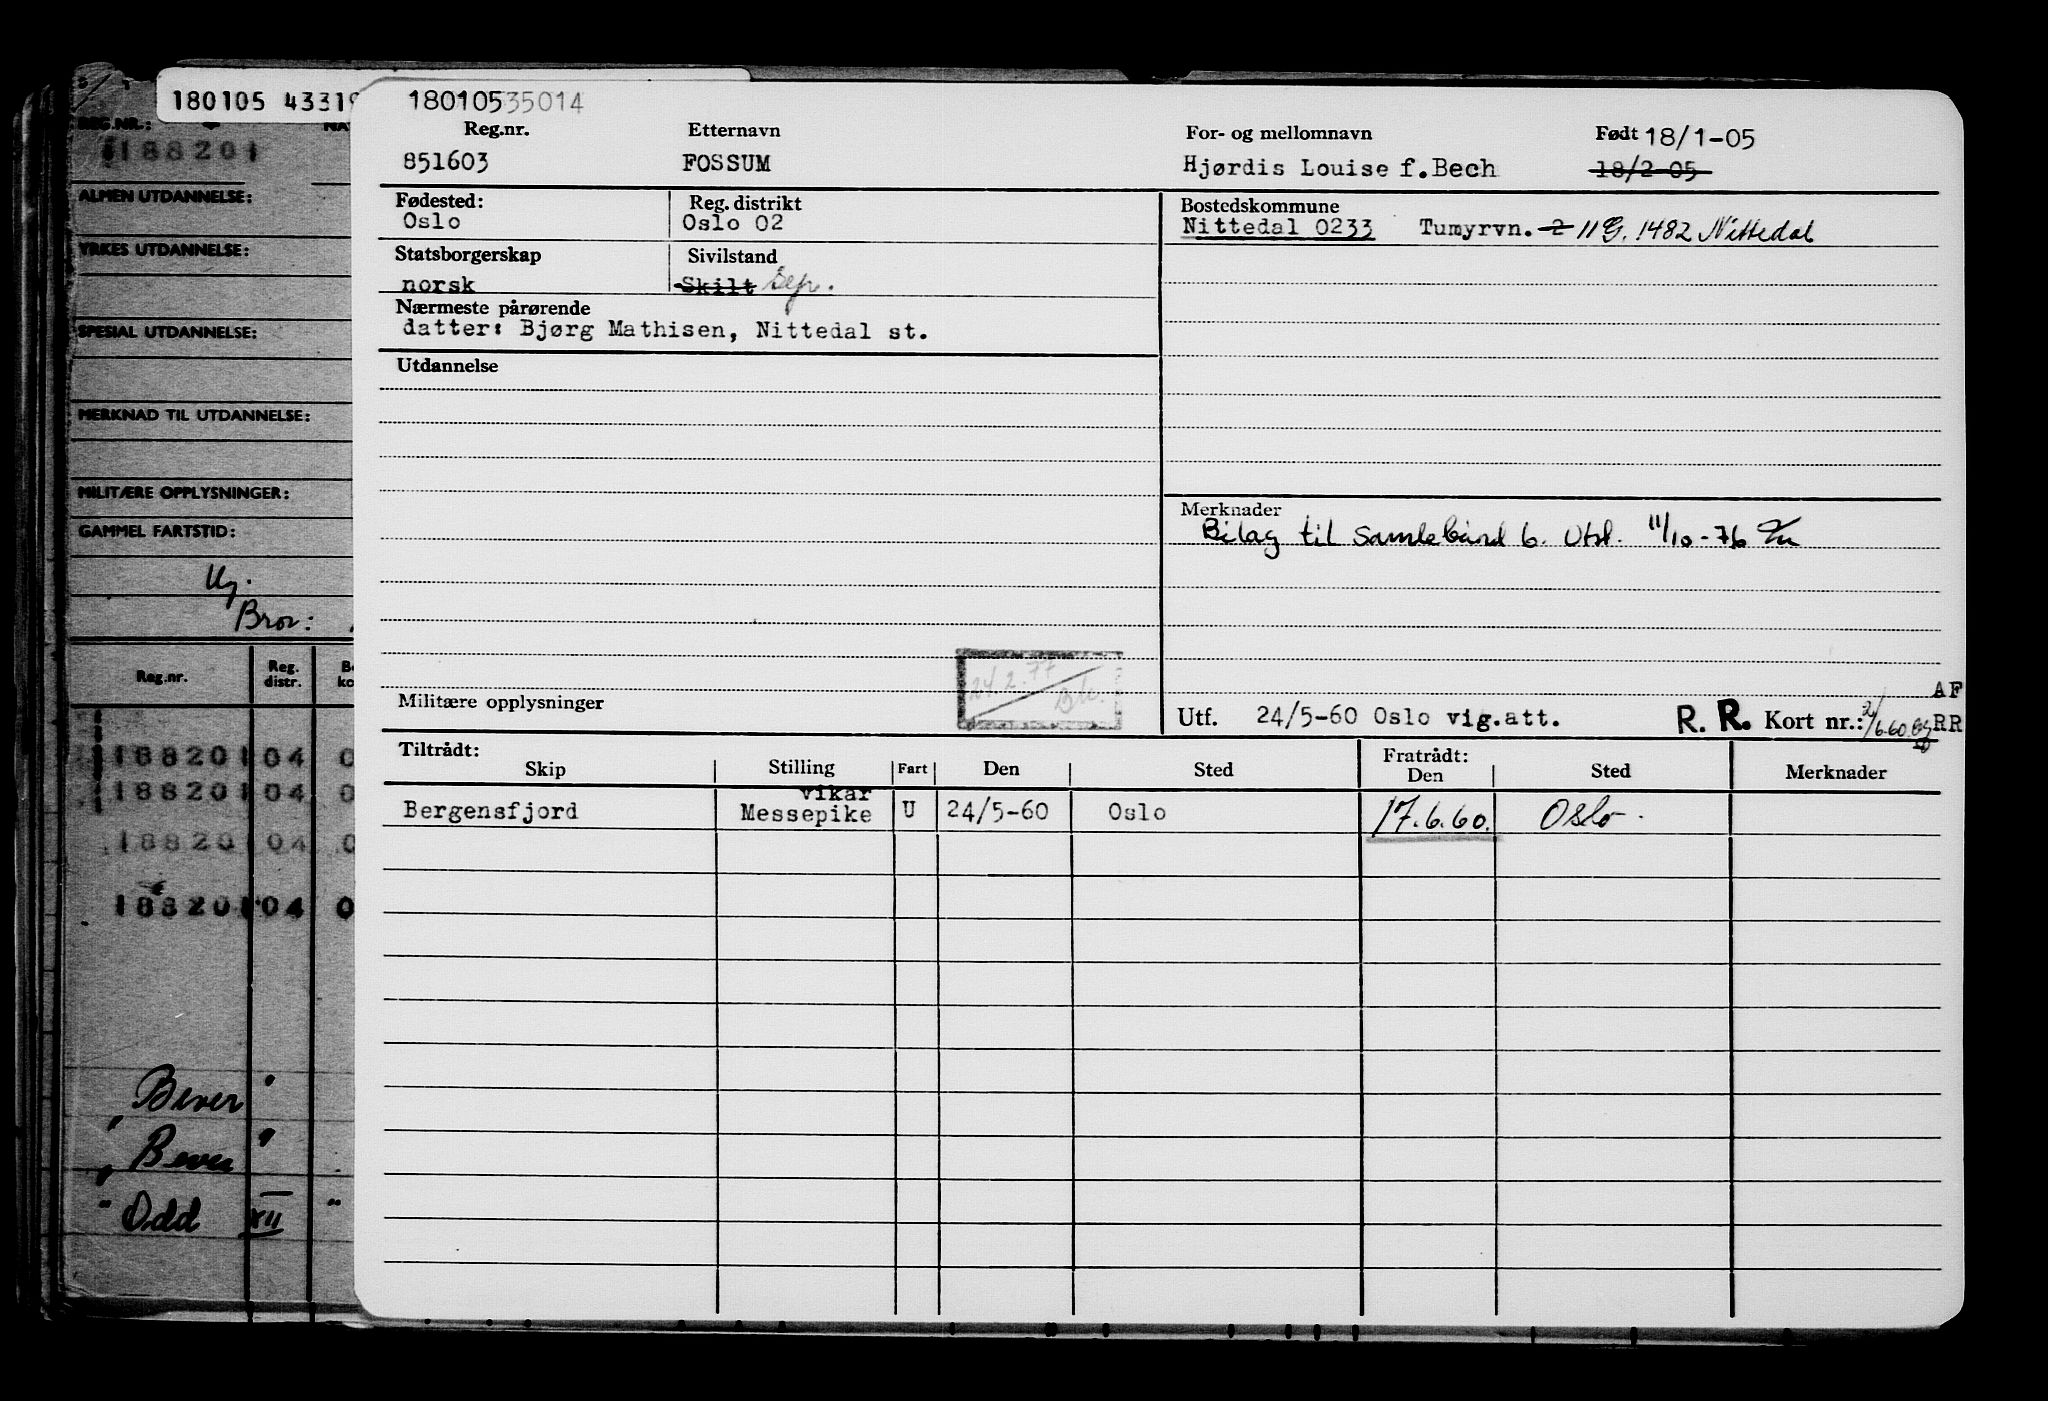 180105 4331
REG.NR.:
188201
ALMEN UTDANNELSE:
YRKES UTDANNELSE:
SPESIAL UTDANNELSE:
MERKNAD TIL UTDANNELSE:
MILITÆRE OPPLYSNINGER:
GAMMEL FARTSTID:
Bror:
Reg.nr. Reg. distr.
188201 04 0
188201 04 0
18820 04 0
188201 04 0
Bever "
" Bever "
" Odd XII "
18010535014
Reg.nr. Etternavn For- og mellomnavn Født 18/1-05
851603 FOSSUM Hjørdis Louise f.Bech 18/2-05
Fødested: Reg. distrikt Bostedskommune
Oslo Oslo 02 Nittedal 0233 Tumyrvn. 2 11G, 1482 Nittedal
Statsborgerskap Sivilstand
norsk Skilt Sep.
Nærmeste pårørende
datter: Bjørg Mathisen, Nittedal st.
Utdannelse
Merknader
Bilag til Samlebånd 6. Utst. 11/10-76
24/2.77
Militære opplysninger
Utf. 24/5-60 Oslo vig.att. R. R. Kort nr.:
AF
RR
Tiltrådt: Fratrådt:
Skip Stilling Fart Den Sted Den Sted Merknader
vikar
Bergensfjord Messepike U 24/5-60 Oslo 17.6.60. Oslo.